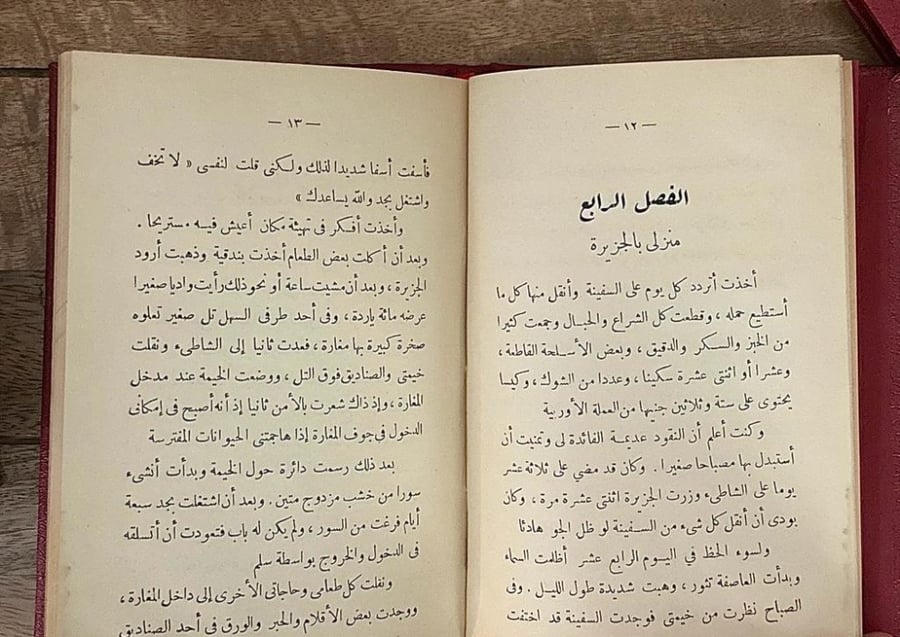 — ١٢ —
الفصل الرابع
منزلى بالجزيرة
أخذت أتردد كل يوم على السفينة وأنقل منها كل ما
أستطيع حمله ، وقطعت كل الشراع والحبال وجمعت كثيرا
من الخبز والسكر والدقيق ، وبعض الأسلحة القاطعة ،
وعشرا أو اثنتى عشرة سكينا ، وعددا من الشوك ، وكيسا
يحتوى على ستة وثلاثين جنيها من العملة الأوربية
وكنت أعلم أن النقود عديمة الفائدة لى وتمنيت أن
أستبدل بها مصباحا صغيرا . وكان قد مضي على ثلاثة عشر
يوما على الشاطىء وزرت الجزيرة اثنتى عشرة مرة ، وكان
بودى أن أنقل كل شىء من السفينة لو ظل الجو هادئا
ولسوء الحظ في اليوم الرابع عشر أظلمت السماء
وبدأت العاصفة تثور ، وهبت شديدة طول الليل . وفى
الصباح نظرت من خيمتى فوجدت السفينة قد اختفت
— ١٣ —
فأسفت أسفا شديدا لذلك ولكنى قلت لنفسى « لا تخف
واشتغل بجد والله يساعدك »
وأخذت أفكر فى تهيئة مكان أعيش فيه مستريحا .
وبعد أن أكلت بعض الطعام أخذت بندقية وذهبت أرود
الجزيرة ، وبعد أن مشيت ساعة أو نحو ذلك رأيت واديا صغيرا
عرضه مائة ياردة ، وفى أحد طرفى السهل تل صغير تعلوه
صخرة كبيرة بها مغارة ، فعدت ثانيا إلى الشاطىء ونقلت
خيمتى والصناديق فوق التل ، ووضعت الخيمة عند مدخل
المغارة ، وإذ ذاك شعرت بالأمن ثانيا إذ أنه أصبح فى إمكانى
الدخول فى جوف المغارة إذا هاجمتنى الحيوانات المفترسة
بعد ذلك رسمت دائرة حول الخيمة وبدأت أنشىء
سورا من خشب مزدوج متين . وبعد أن اشتغلت بجد سبعة
أيام فرغت من السور ، ولم يكن له باب فتعودت أن أتسلقه
فى الدخول والخروج بواسطة سلم
ونقلت كل طعامى وحاجاتى الأخرى إلى داخل المغارة ،
ووجدت بعض الأقلام والحبر والورق فى أحد الصناديق